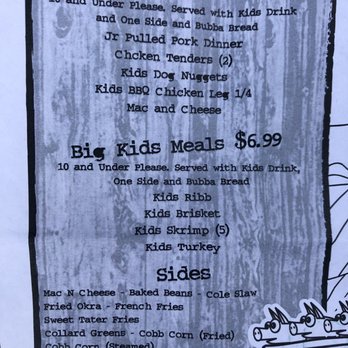 10 and Under Please. Served with Kids Drink
and One Side and Bubba Bread
Jr Pulled Pork Dinner
Chcken Tenders (2)
Kids Dog Nuggets
Kids BBQ Chicken Leg 1/4
Mac and Cheese
Big Kids Meals $6.99
10 and Under Please. Served with Kids Drink,
One Side and Bubba Bread
Kids Ribb
Kids Brisket
Kids Skrimp (5)
Kids Turkey
Sides
Mac N Cheese - Baked Beans - Cole Slaw
Fried Okra - French Fries
Sweet Tater Fries
Collard Greens - Cobb Corn (Fried)
Cobb Corn (Steamed)